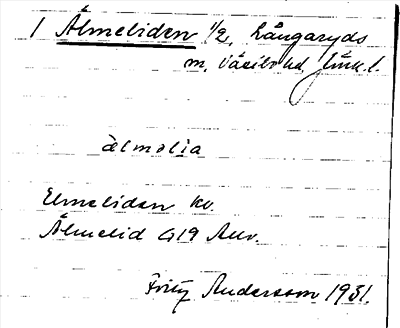 1 Älmeliden 1/2, Långaryds
m, Västbo hd, Jönk. l.
älmelia
Elmeliden kv.
Älmelid G19 Anv.
Fritz Andersson 1931.